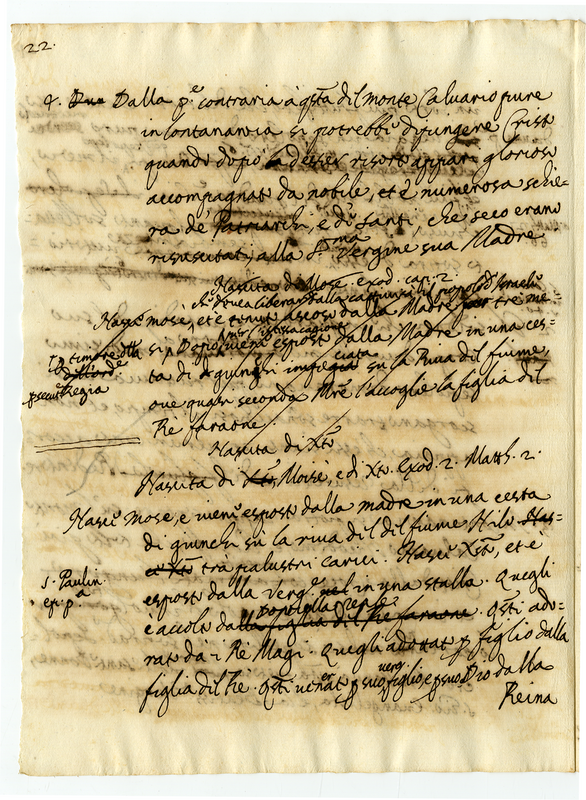 22.
Dalla p.e contraria à q̃sta del monte Calvario pure
in lontananza si potrebbe dipingere Cristo
quando dopo d'esser risorto appar glorioso
accompagnato da nobile, et è numerosa schie=
ra de Patriarchi, e di Santi, che seco erano
risuscitati, alla S.ma Vergine sua Madre
Nascita di Mosè. exod. cap. 2.
ch. dovea liberar dalla captività il popolo d'Israele
Nasce mose, et è tenut ascoso dalla Madre tre me=
si. Dopo viene esposto dalla Madre in una ces=
ta di giunchi su la Riva del fiume,
ove quasi seconda M̃re l'accoglie la figlia del
Rè faraone.
timore
Regia
Nascita di Xt̃o
Nascita di Moise, e di Xt̃o. Exod. 2. Matth. 2.
Nasce mose, e viene esposto dalla madre in una cesta
di giunchi sù la riva del del fiume Nilo Nas=
ce Xt̃o tra palustri carici. Nasce Xt̃o, et è
S. Paulin.
ep. p.a
esposto dalla Verg.e nel in una stalla. Quegli
è accolto dalla figlia del Rè faraone. Q̃sti ado=
rato da i Rè Magi. Quegli adottato p figlio dalla
figlia del Rè. Q̃sti p suo figlio e p suo Dio dalla
verg.
Reina